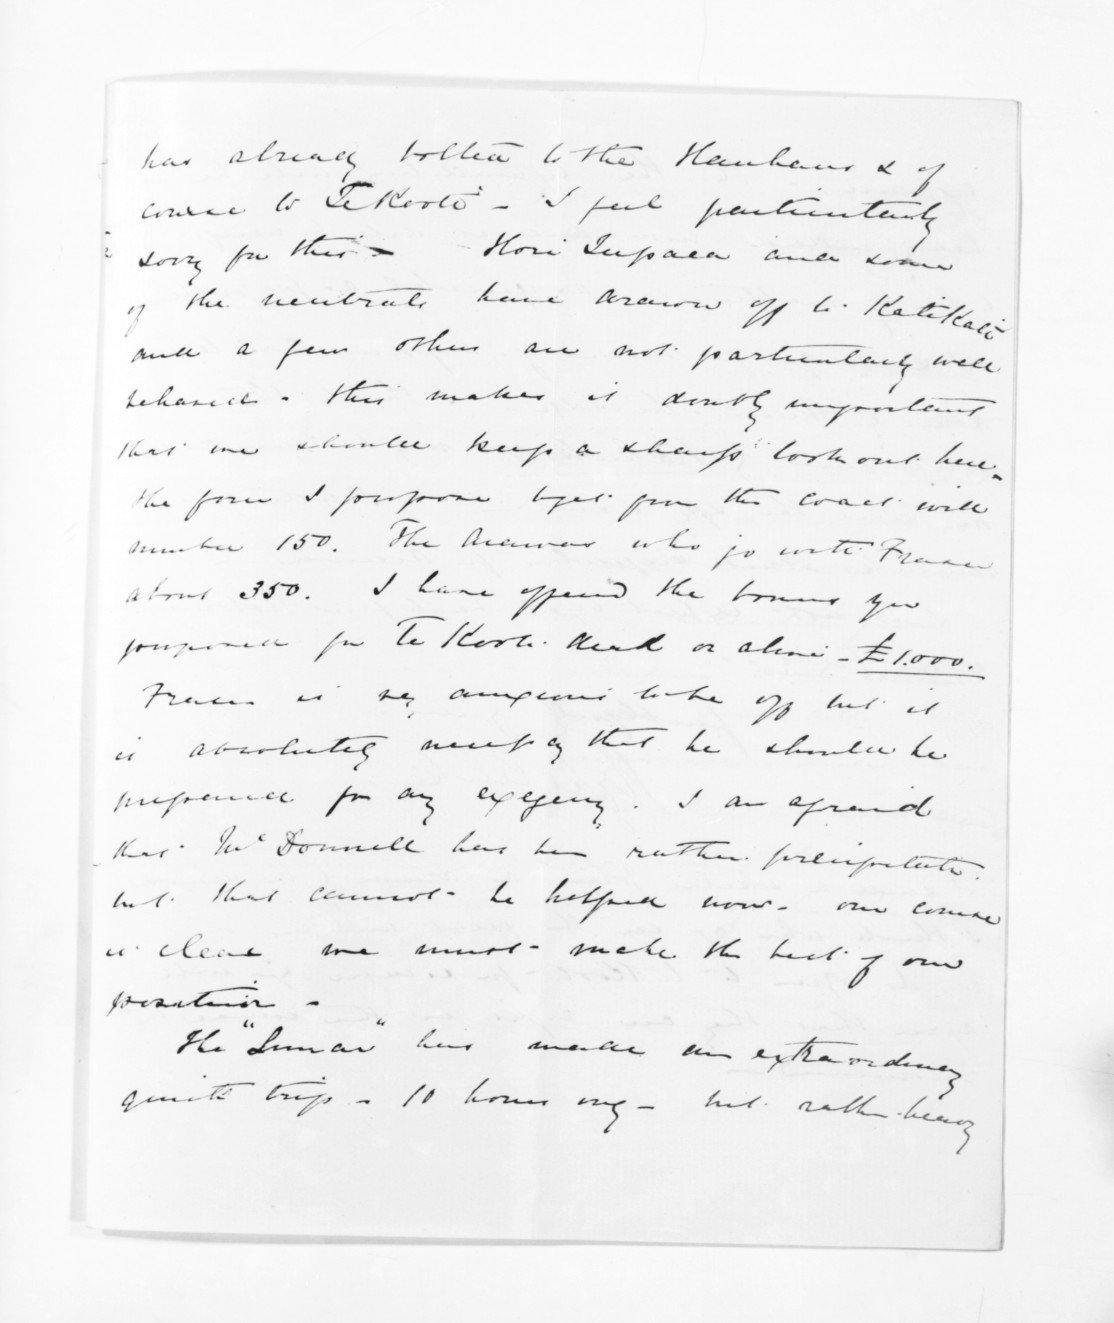 has already bolted to the Hauhaus & of
course to Te Kooti - I feel particularly
sorry for this - Hori Tupaea and some
of the neutrals have drawn off to Kati Kati
and a few others are not particularly well
behaved - this makes it doubly important
that we should keep a sharp look out here -
the force I propose to get from this coast will
number 150. The Arawas who go with Fraser
about 350. I have offered the bonus you
proposed for Te Kooti dead or alive - £1.000.
Fraser is very anxious to be off but it
is absolutely necessary that he should be
prepared for any exegency. I am afraid
that McDonnell has been rather precipitate.
but that cannot be helped now - our course
is clear we must make the best of our
position -
The "Sturt" has made an extraordinary
quick trip - 10 hours only - but rather heavy